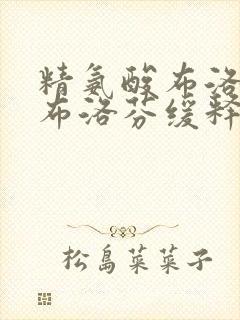 精氨酸布洛
布洛芬缓释
松島菜菜子